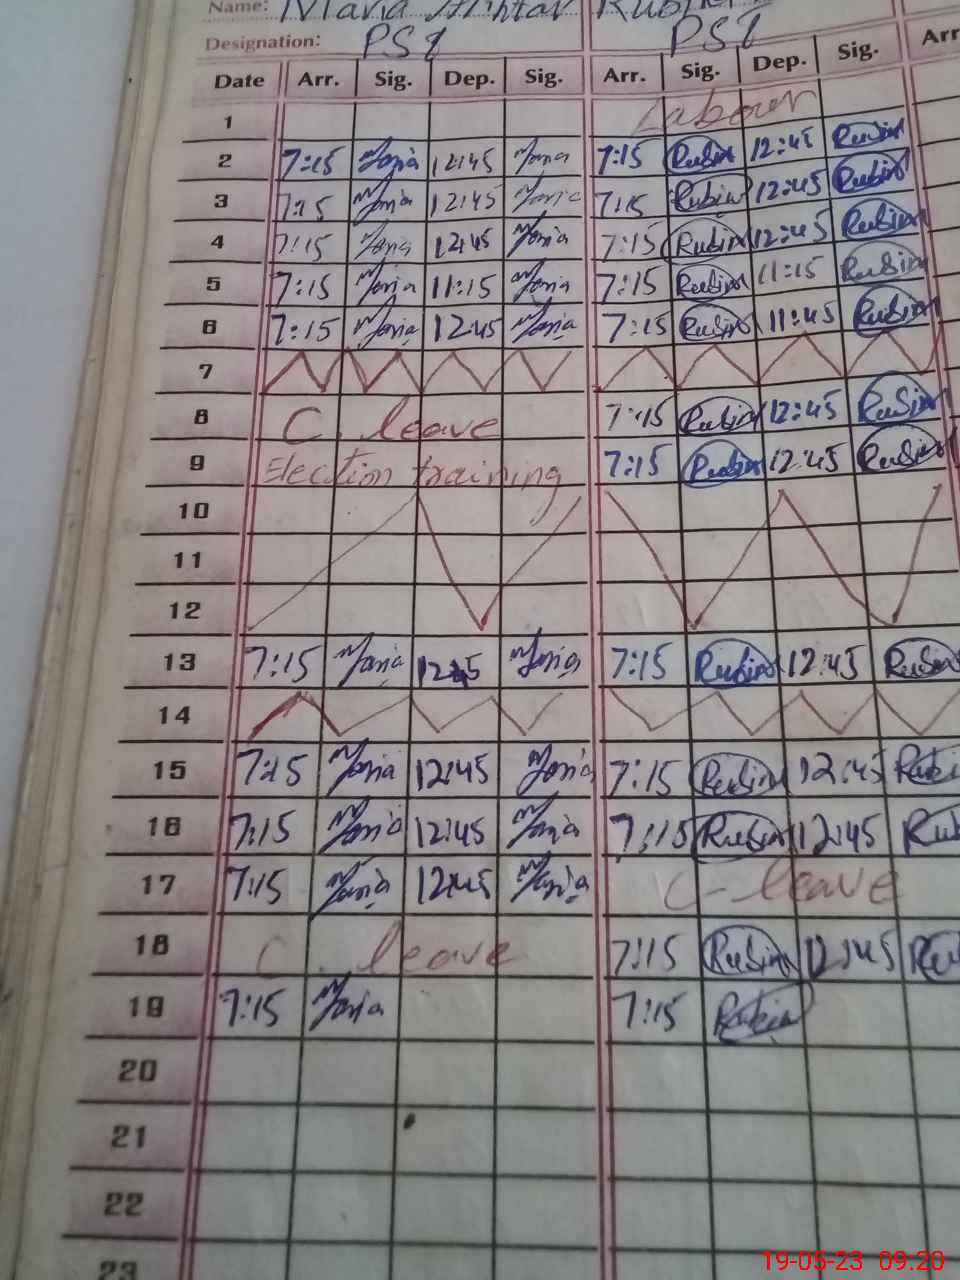 Name: Maria Akhtar Rubin
Designation: PST PST
Date Arr. Sig. Dep. Sig. Arr. Sig. Dep. Sig. Arr
1 Labour
2 7:15 Maria 12:45 Maria 7:15 Rubin 12:45 Rubin
3 7:15 Maria 12:45 Maria 7:15 Rubin 12:45 Rubin
4 7:15 Maria 12:45 Maria 7:15 Rubin 12:45 Rubin
5 7:15 Maria 11:15 Maria 7:15 Rubin 11:15 Rubin
6 7:15 Maria 12:45 Maria 7:15 Rubin 11:45 Rubin
7
8 C. leave 7:15 Rubin 12:45 Rubin
9 Election training 7:15 Rubin 12:45 Rubin
10
11
12
13 7:15 Maria 12:45 Maria 7:15 Rubin 12:45 Rubin
14
15 7:15 Maria 12:45 Maria 7:15 Rubin 12:45 Rubi
16 7:15 Maria 12:45 Maria 7:15 Rubin 12:45 Rub
17 7:15 Maria 12:45 Maria C- leave
18 C. leave 7:15 Rubin 12:45 Ru
19 7:15 Maria 7:15 Rubin
20
21
22
23
19-05-23 09.20